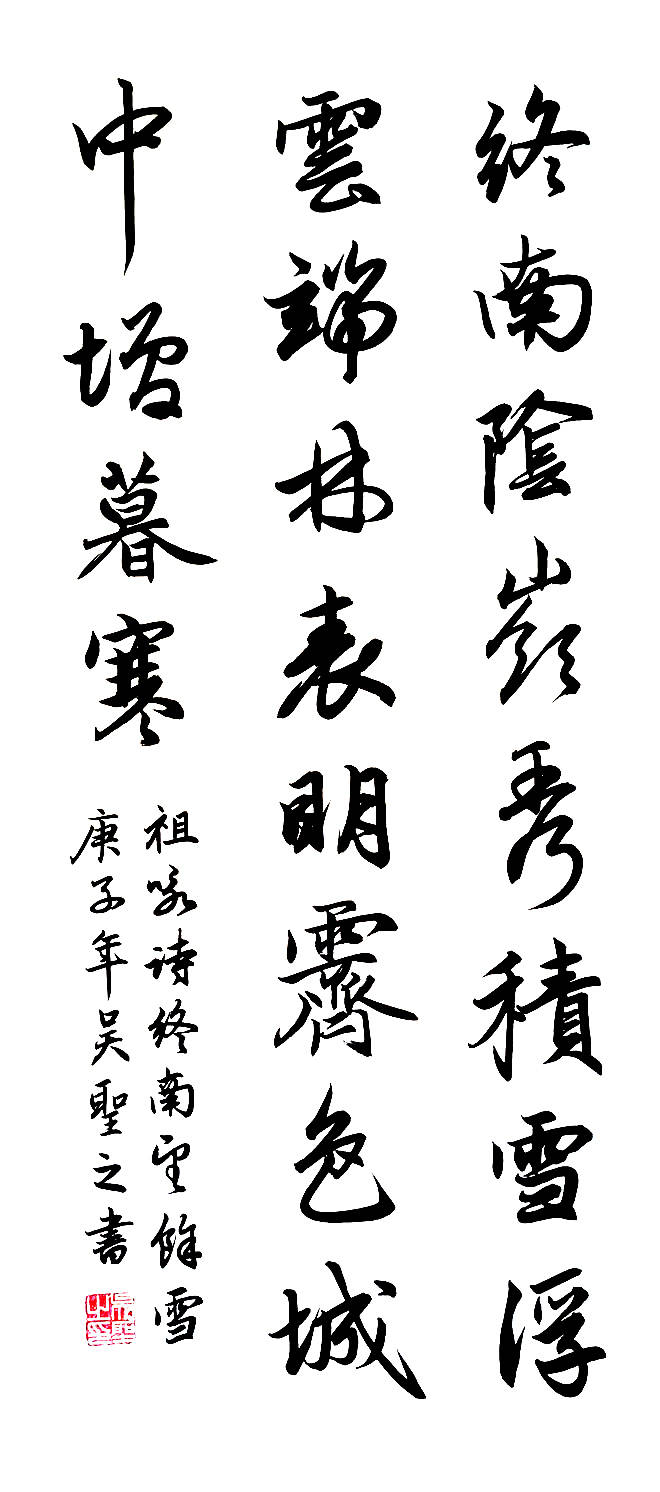 終南陰嶺秀積雪浮
雲端林表明霽色城
中增暮寒
祖咏诗終南望餘雪
庚子年吴聖之書
吴聖之印